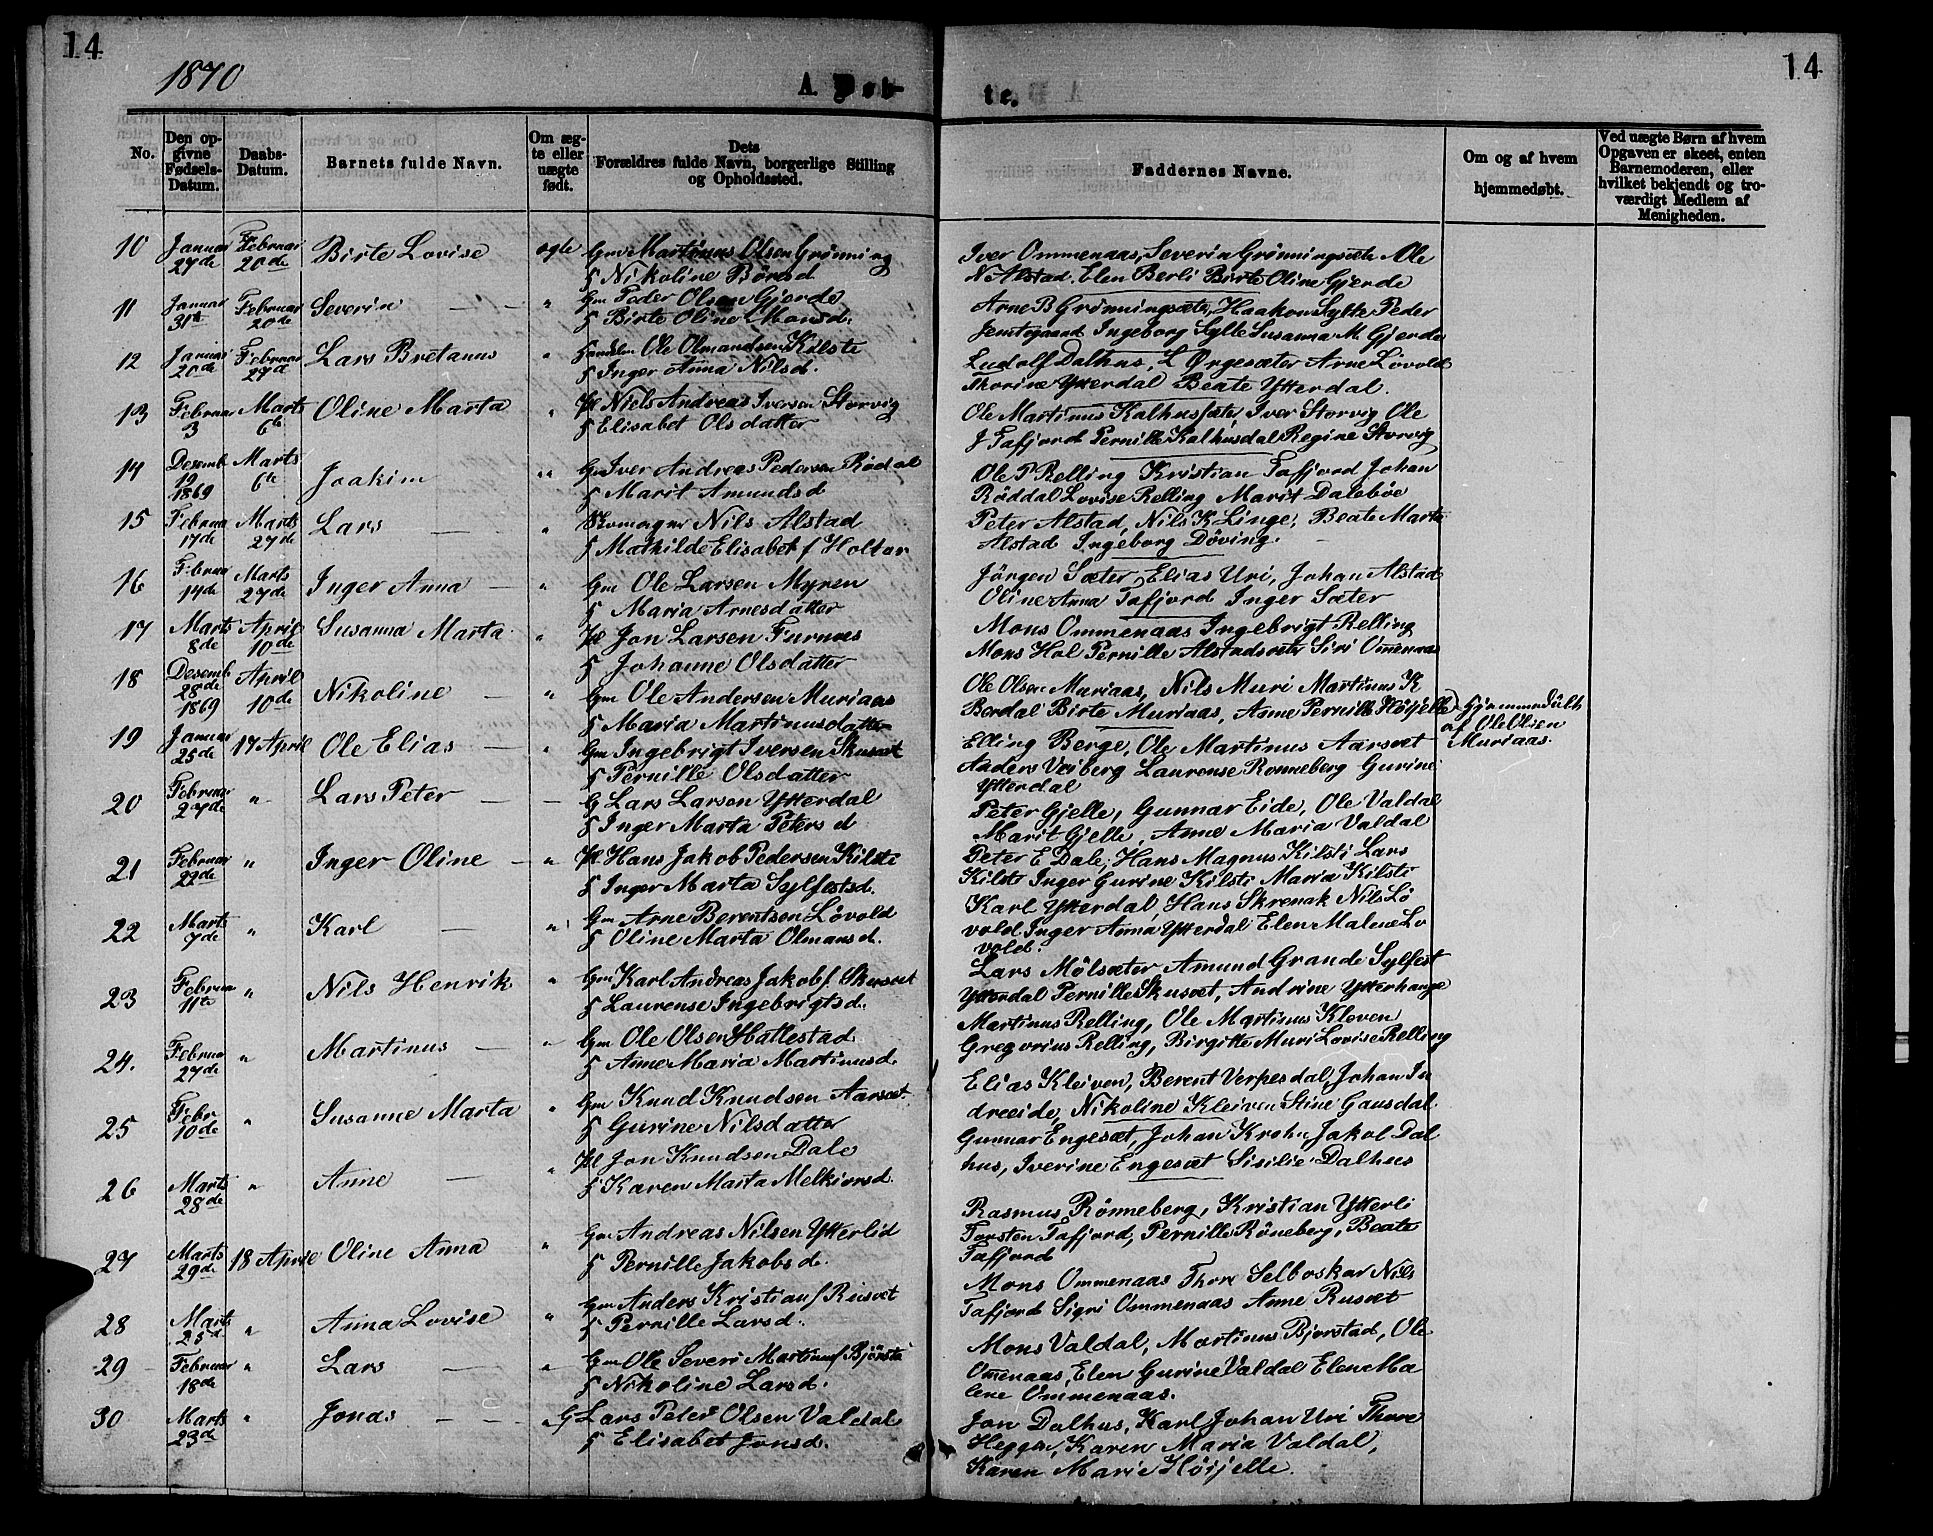 14
14
1870
A. Døb-
te.
No.
Den op-
givne
Fødsels-
Datum.
Daabs-
Datum.
Barnets fulde Navn.
Om æg-
te eller
uægte
født.
Dets
Forældres fulde Navn, borgerlige Stilling
og Opholdssted.
Faddernes Navne.
Om og af hvem
hjemmedøbt.
Ved uægte Børn af hvem
Opgaven er skeet, enten
Barnemoderen, eller
hvilket bekjendt og tro-
værdigt Medlem af
Menigheden.
10 Januar 27de Februar 20de Birte Lovise ægte Gm Martinus Olsen Grønning
Nikoline Børesd
Iver Ommenaas, Severin Grønningsæte Ole
N Alstad. Elen Berli Birte Oline Gjerde
11 Januar 31te Februar 20de Severin " Gm Peder Olsen Gjerde
Birte Oline Monsd.
Arne B Grønningsæte, Haakon Sylte Peder
Jemtegaard Ingeborg Sylte Susanna M. Gjerde
12 Januar 20de Februar 27d Lars Bretanus " Ole Olmandsen Kilste
Inger Anna Nilsd.
Ludolf Dalhus, L Ørgesæter Arne Løvold
Thorine Ytterdal Beate Ytterdal.
13 Februar 3 Marts 6te Oline Marta " Pl Niels Andreas Iversen Storvig
Elisabet Olsdatter
Ole Martinus Kalhussæte, Iver Storvig Ole
J Tafjord Pernille Kalhusdal Regine Storvig
14 Desemb 19 1869 Marts 6te Joakim " Gm Iver Andreas Pedersen Rødal
Marit Amundsd
Ole P Relling Kristian Tafjord Johan
Røddal Lovise Relling Marit Dalebøe
15 Februa 17de Marts 27de Lars " Skomager Nils Alstad
Mathilde Elisabet f Holter
Peter Alstad, Nils K Linge, Beate Marta
Alstad Ingeborg Døving.
16 Februar 14de Marts 27de Inger Anna " Gm Ole Larsen Myren
Maria Arnesdatter
Jørgen Sæter, Elias Uri, Johan Alstad
Oline Anna Tafjord Inger Sæter
17 Marts 8de April 10de Susanna Marta " Pl Jon Larsen Furnæs
Johanne Olsdatter
Mons Ommenaas Ingebrigt Relling
Mons Hol Pernille Alstadsæte Siri Omenaas
18 Desemb 28de 1869 April 10de Nikoline " Gm Ole Andersen Muriaas
Maria Martinusdatter
Ole Olsen Muriaas, Nils Muri Martinus K
Berdal Birte Muriaas, Anne Pernille Høijelle
Hjemmedøbt
af Ole Olsen
Muriaas.
19 Januar 25de 17 April Ole Elias " Gm Ingebrigt Iversen Skusæt
Pernille Olsdatter
Elling Berge, Ole Martinus Aarsæt
Anders Veiberg Laurense Ronneberg Gurine
Ytterdal
20 Februar 27de " Lars Peter G Lars Larsen Ytterdal
Inger Marta Petersd
Peter Gjelle, Gunnar Eide, Ole Valdal
Marit Gjelle, Anne Maria Valdal
21 Februar 22de " Inger Oline " Pl Hans Jakob Pedersen Kilste
Inger Marta Sylfestsd.
Peter E Dale, Hans Magnus Kilsti Lars
Kilsti Inger Gurine Kilsti Maria Kilsti
22 Marts 7de " Karl " Gm Arne Berentsen Løvold
Oline Marta Olmansd.
Karl Ytterdal, Hans Skrenak Nils Lø
vold Inger Anna Ytterdal Elen Malene Lø
vold.
23 Februa 11te " Nils Henrik " Gm Karl Andreas Jakobs. Skusæt
Laurense Ingebrigtsd.
Lars Mølsæter Amund Grande Sylfest
Ytterdal Pernille Skusæt, Andrine Ytterhange
24. Februa 27de " Martinus " Gm Ole Olsen Hattestad
Anne Maria Martinusd.
Martinus Relling, Ole Martinus Kleven
Gregorius Relling, Birgitte Muri Lovise Relling
25 Febr 10de " Susanne Marta " Gm Knud Knudsen Aarsæt
Gurine Nilsdatter
Elias Kleiven, Berent Verpesdal, Johan In
dreeide, Nikoline Kleiven Stine Gausdal.
26 Marts 28de " Anne " Pl Jon Knudsen Dale
Karen Marta Melkiorsd.
Gunnar Engesæt, Johan Krohn Jakob Dal
hus, Iverine Engesæt Sisilie Dalhus
27 Marts 29de 18 April Oline Anna " Gm Andreas Nilsen Ytterlid
Pernille Jakobsd.
Rasmus Rønneberg, Kristian Ytterli
Torsten Tafjord, Pernille Røneberg, Beate
Tafjord
28 Marts 25d " Anna Lovise " Gm Anders Kristians Rusæt
Pernille Larsd.
Mons Ommenaas Thore Selboskar Nils
Tafjord Sigri Ommenaas Anne Rusæt
29 Februar 18de " Lars " Gm Ole Severi Martinus Bjørsta
Nikoline Larsd.
Mons Valdal, Martinus Bjorstad, Ole
Omenaas, Elen Gurine Valdal Elen Ma
lene Ommenaas.
30 Marts 23de " Jonas " G Lars Peter Olsen Valdal
Elisabet Jonsd.
Jon Dalhus, Karl Johan Uri Thore
Heggen, Karen Maria Valdal,
Karen Marie Høijelle.